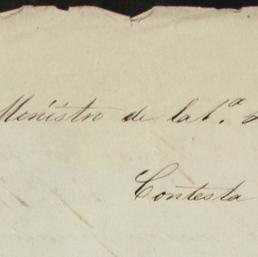 Ministro de la
Contesta